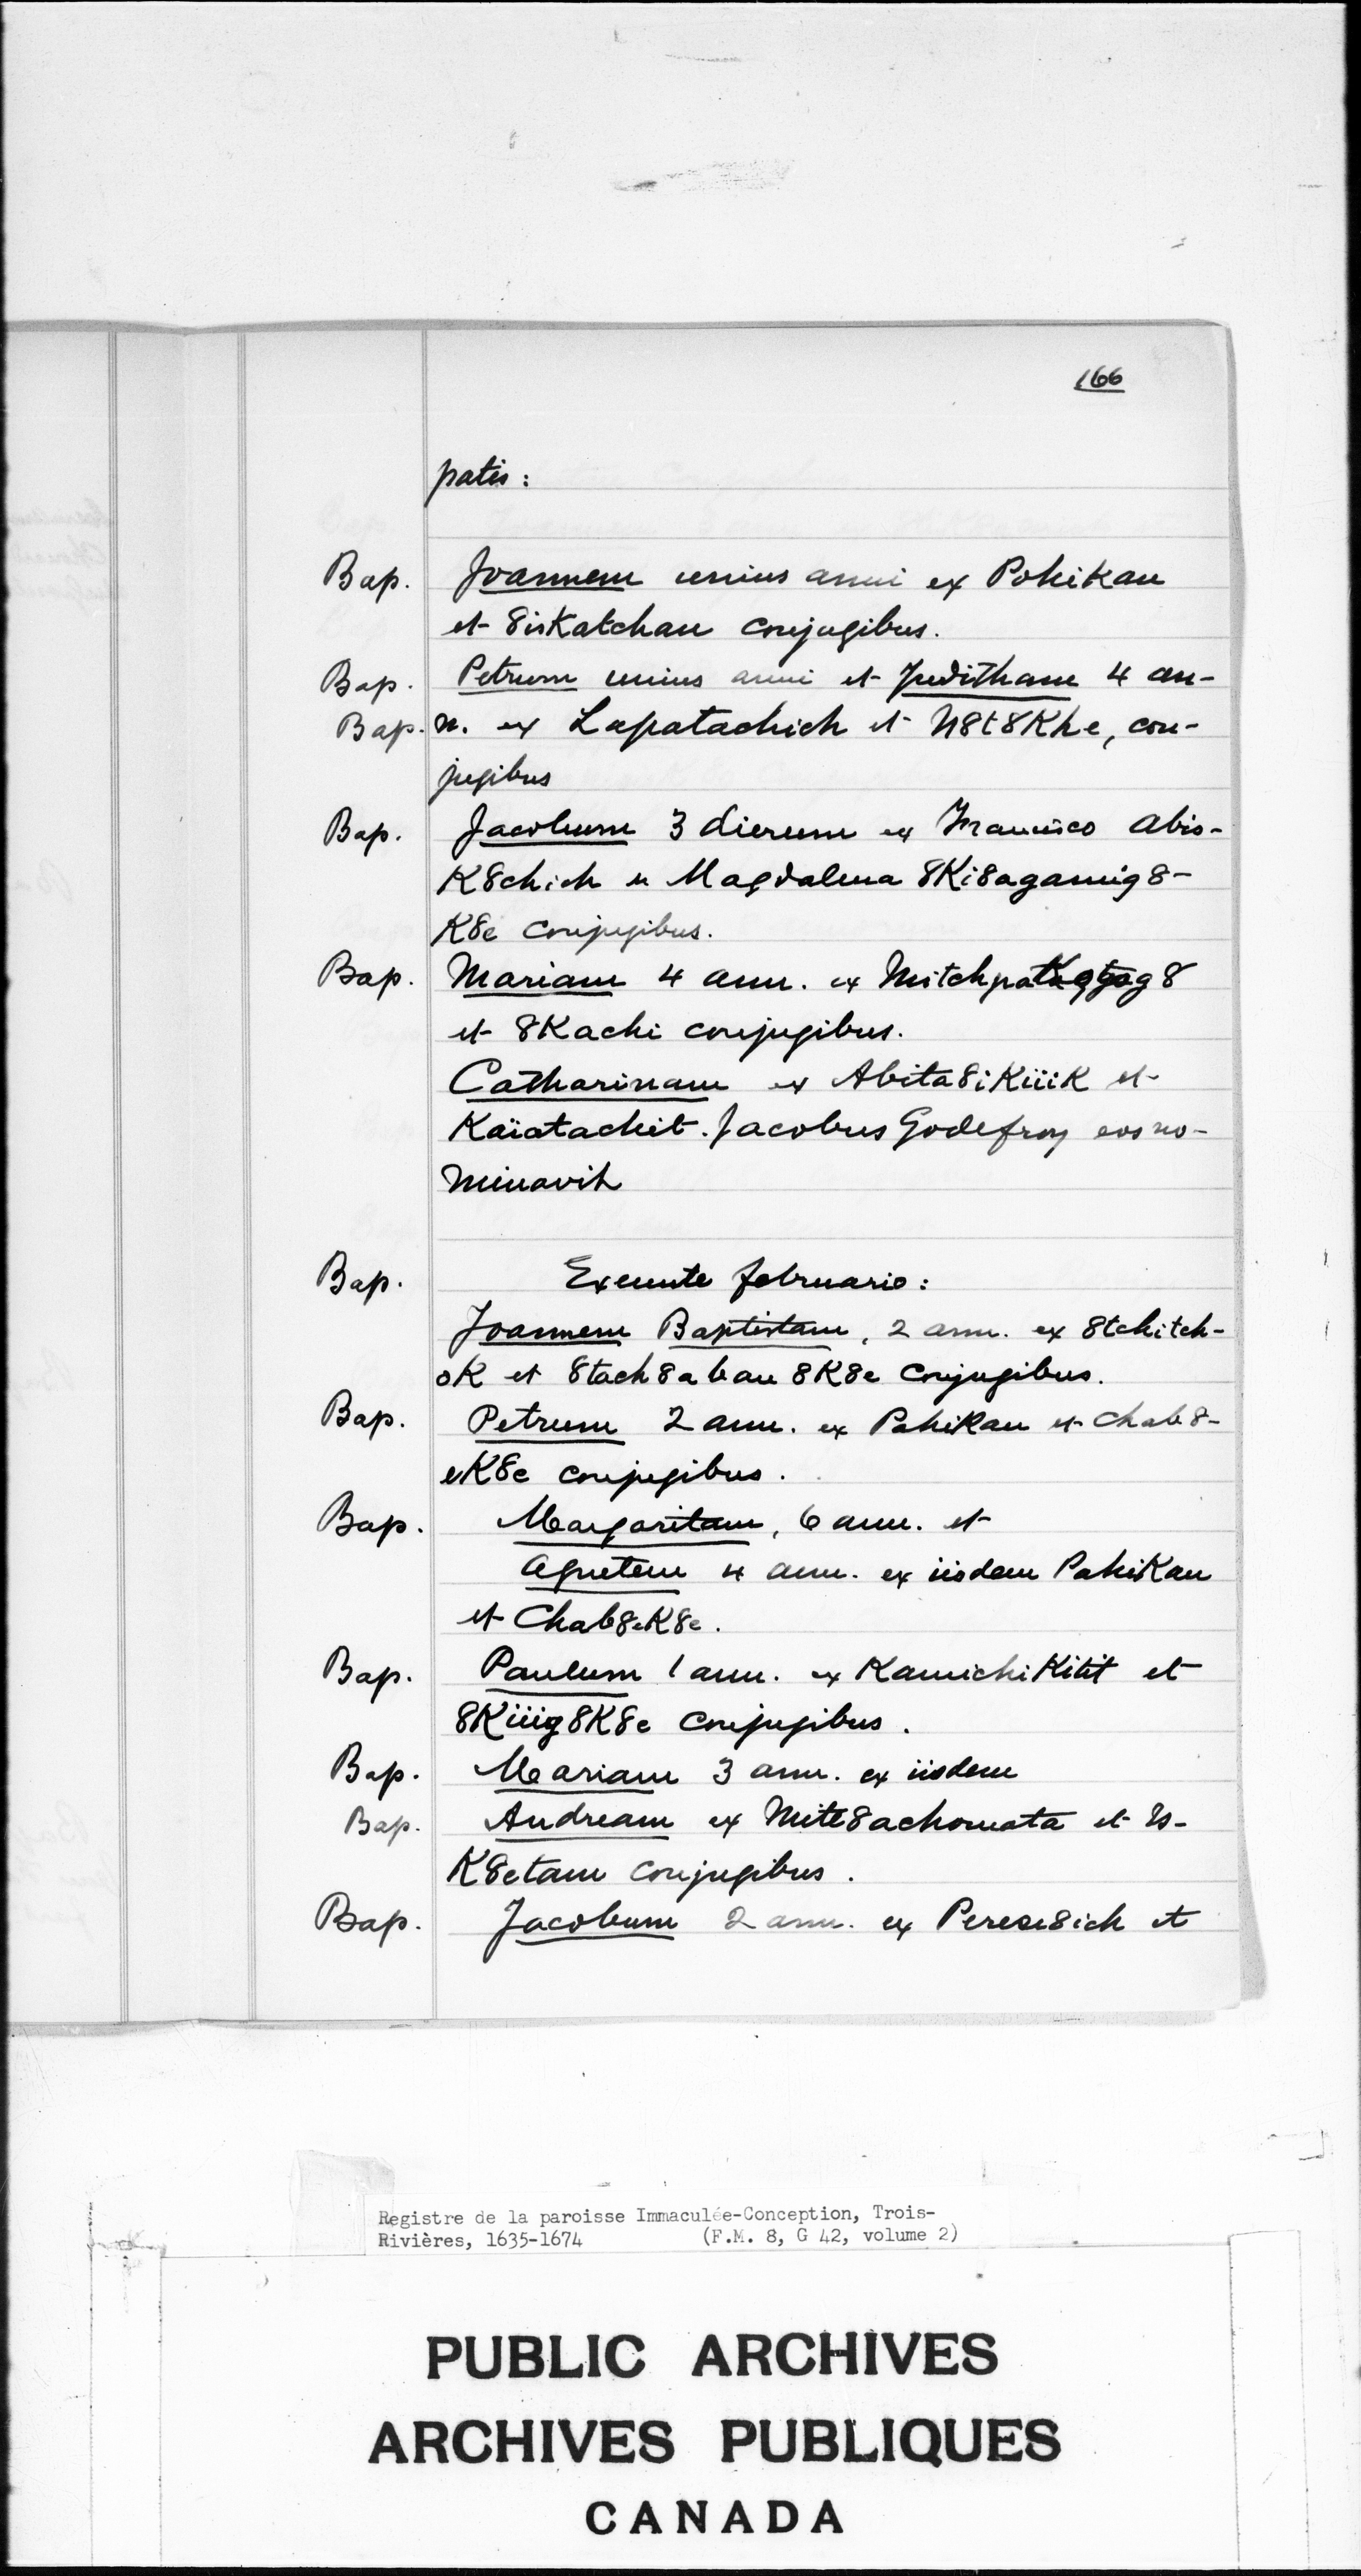 166
patis :
Bap. Joannem unius anni ex Pohikau
et 8isKatchau conjugibus.
Bap. Petrum unius anni et Juditham 4 an-
Bap. n. ex Lapatachich et N8t8Khe, con-
jugibus
Bap. Jacobum 3 dierum ex Francisco Abis-
K8chich et Magdalena 8Ki8agamig8-
K8e conjugibus.
Bap. Mariam 4 ann. ex
et 8Kachi conjugibus.
Catharinam ex Abita8iKiiiK et
Kaïatachit. Jacobus Godefroy eos no-
minavit
Bap. Exeunte februario :
Joannem Baptistam, 2 ann. ex 8tchitch-
oK et 8tach8abau8K8e conjugibus.
Bap. Petrum 2 ann. ex PahiKau et Chab8-
eK8e conjugibus.
Bap. Margaritam, 6 ann. et
Agnetem 4 ann. ex iisdem PahiKau
et Chab8eK8e.
Bap. Paulum 1 ann. ex KamichiKitit et
8Kiiig8K8e conjugibus.
Bap. Mariam 3 ann. ex iisdem
Bap. Andream ex Mite8achomata et Is-
K8etam conjugibus.
Bap. Jacobum 2 ann. ex et
Registre de la paroisse Immaculée-Conception, Trois-
Rivières, 1635-1674 (F.M. 8, G 42, volume 2)
PUBLIC ARCHIVES
ARCHIVES PUBLIQUES
CANADA